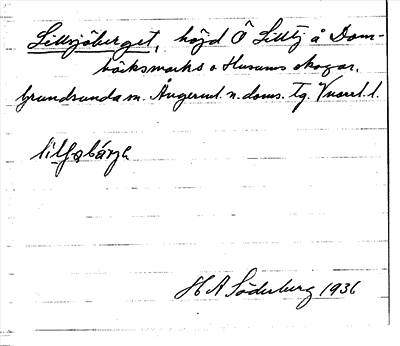 Lillsjöberget, höjd Ö Lillsj å Dom-
bäcksmarks o Husums skogar.
Grundsunda sn. Ångerml. n. doms. Tg. Vnorrl. l.
H A Söderberg 1936